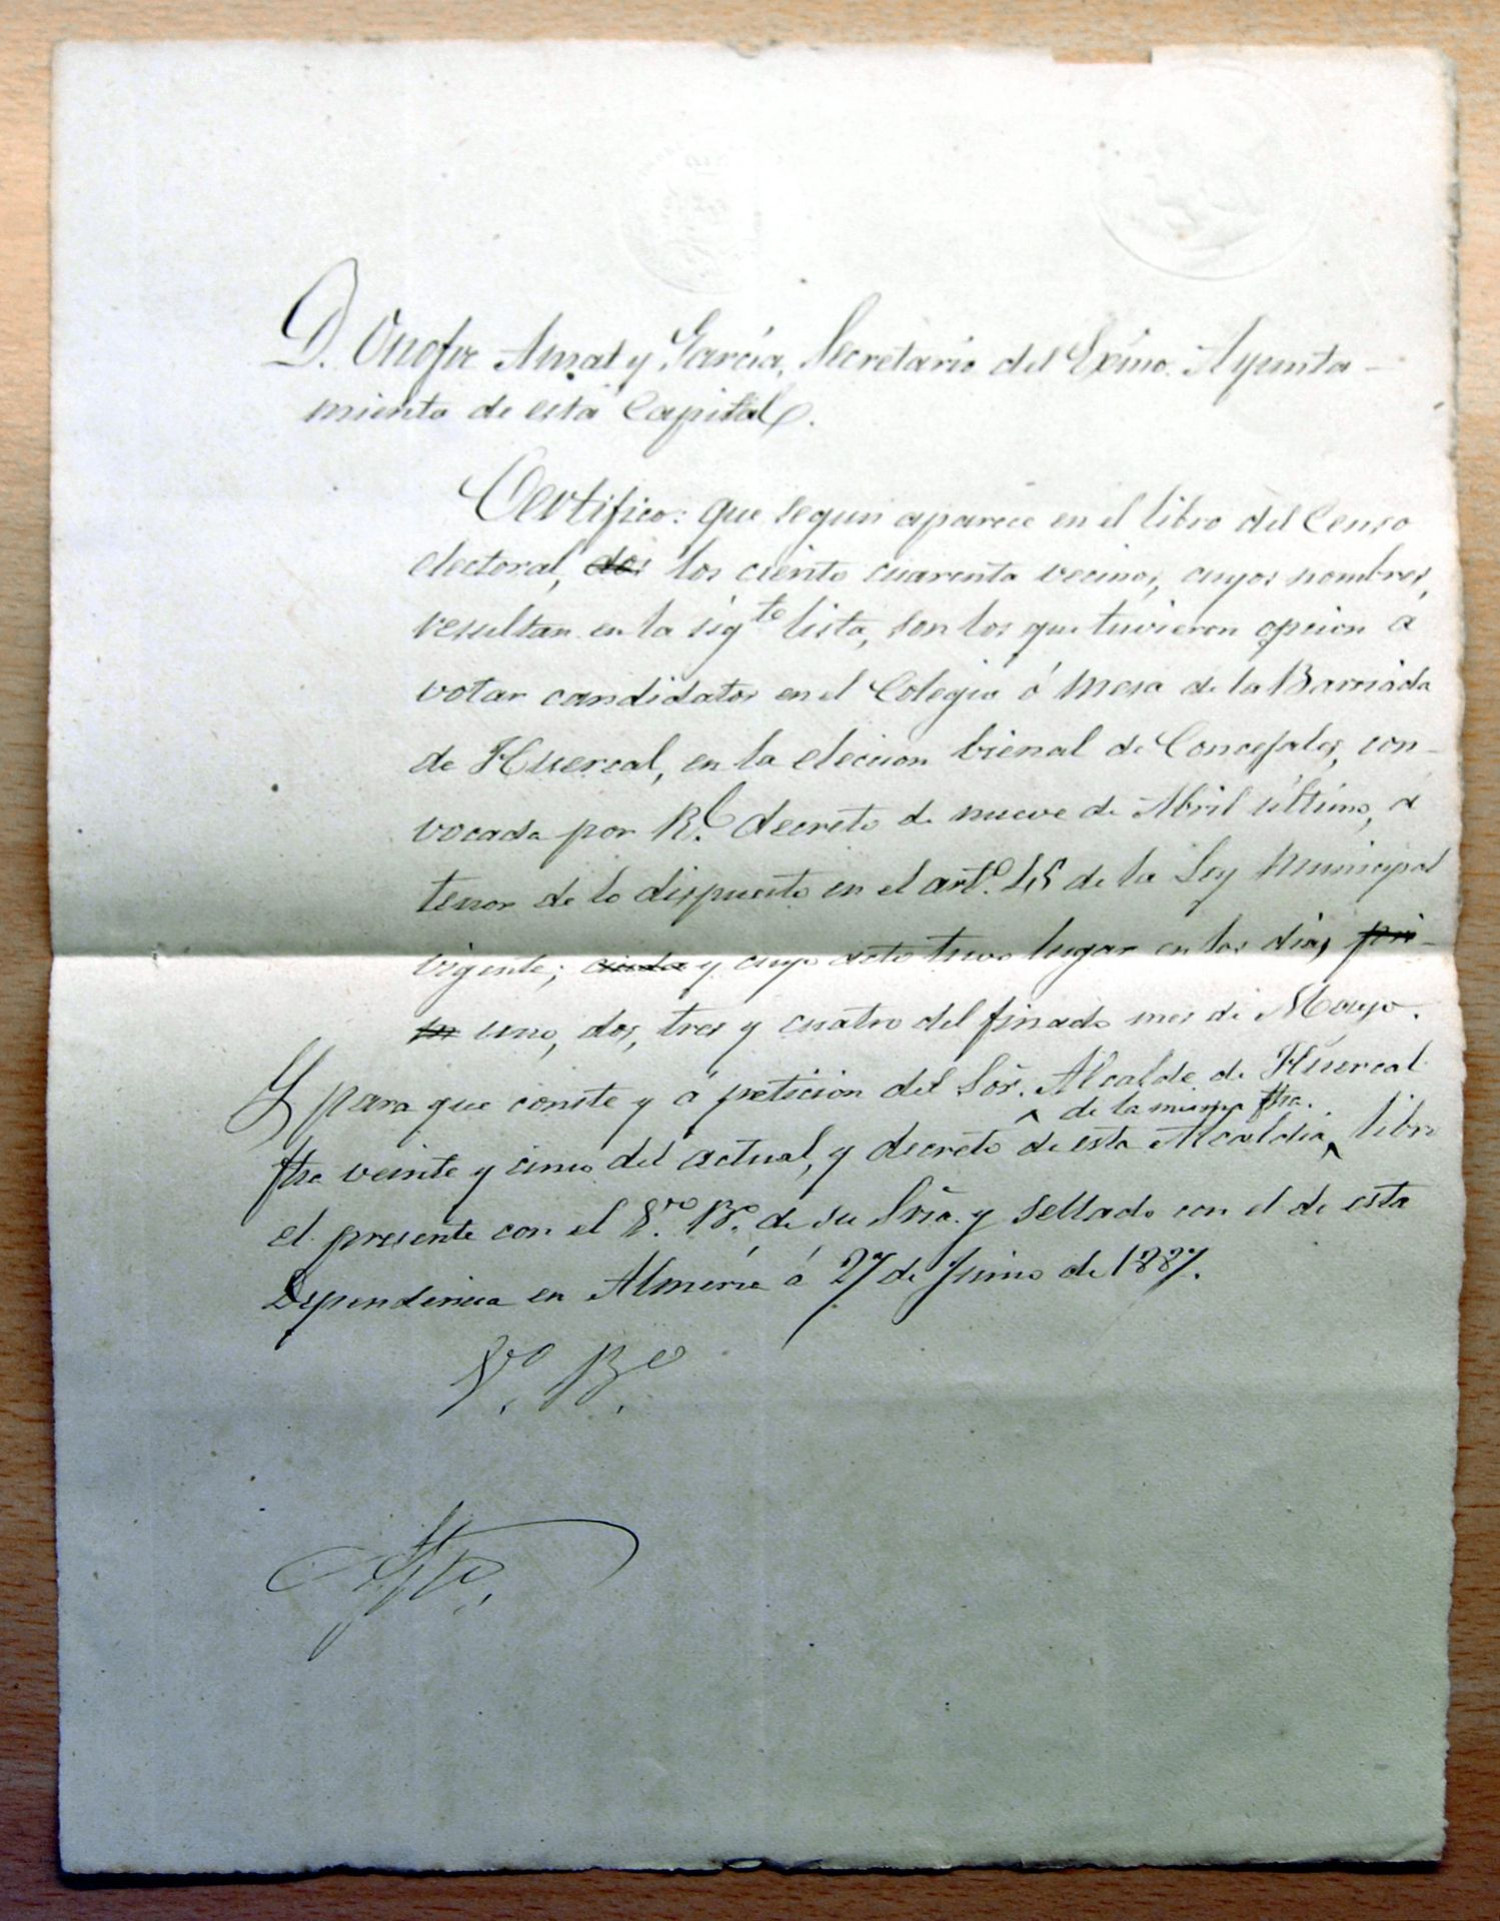 D. Onofre Amat y García, Secretario del Exmo. Ayunta-
miento de esta Capital.
Certifico: que segun aparece en el libro del Censo
electoral, dos los ciento cuarenta vecinos, cuyos nombres,
resultan en la sigte lista, son los que tuvieron opcion á
votar candidatos en el Colegio ó Mesa de la Barriada
de Huercal, en la eleccion bienal de Concejales, con-
vocada por Rl. decreto de nueve de Abril último, á
tenor de lo dispuesto en el arto. 45 de la Ley Municipal
vigente; y cuyo acto tuvo lugar en los dias pri-
m uno, dos, tres y cuatro del finado mes de Mayo.
Y para que conste y á peticion del Sor. Alcalde de Huercal
de la misma fha.
fha veinte y cinco del actual, y decreto de esta Alcaldia, libro
el presente con el Vo. Bo. de su Sria. y sellado con el de esta
Dependencia en Almeria á 27 de Junio de 1887.
Vo. Bo.